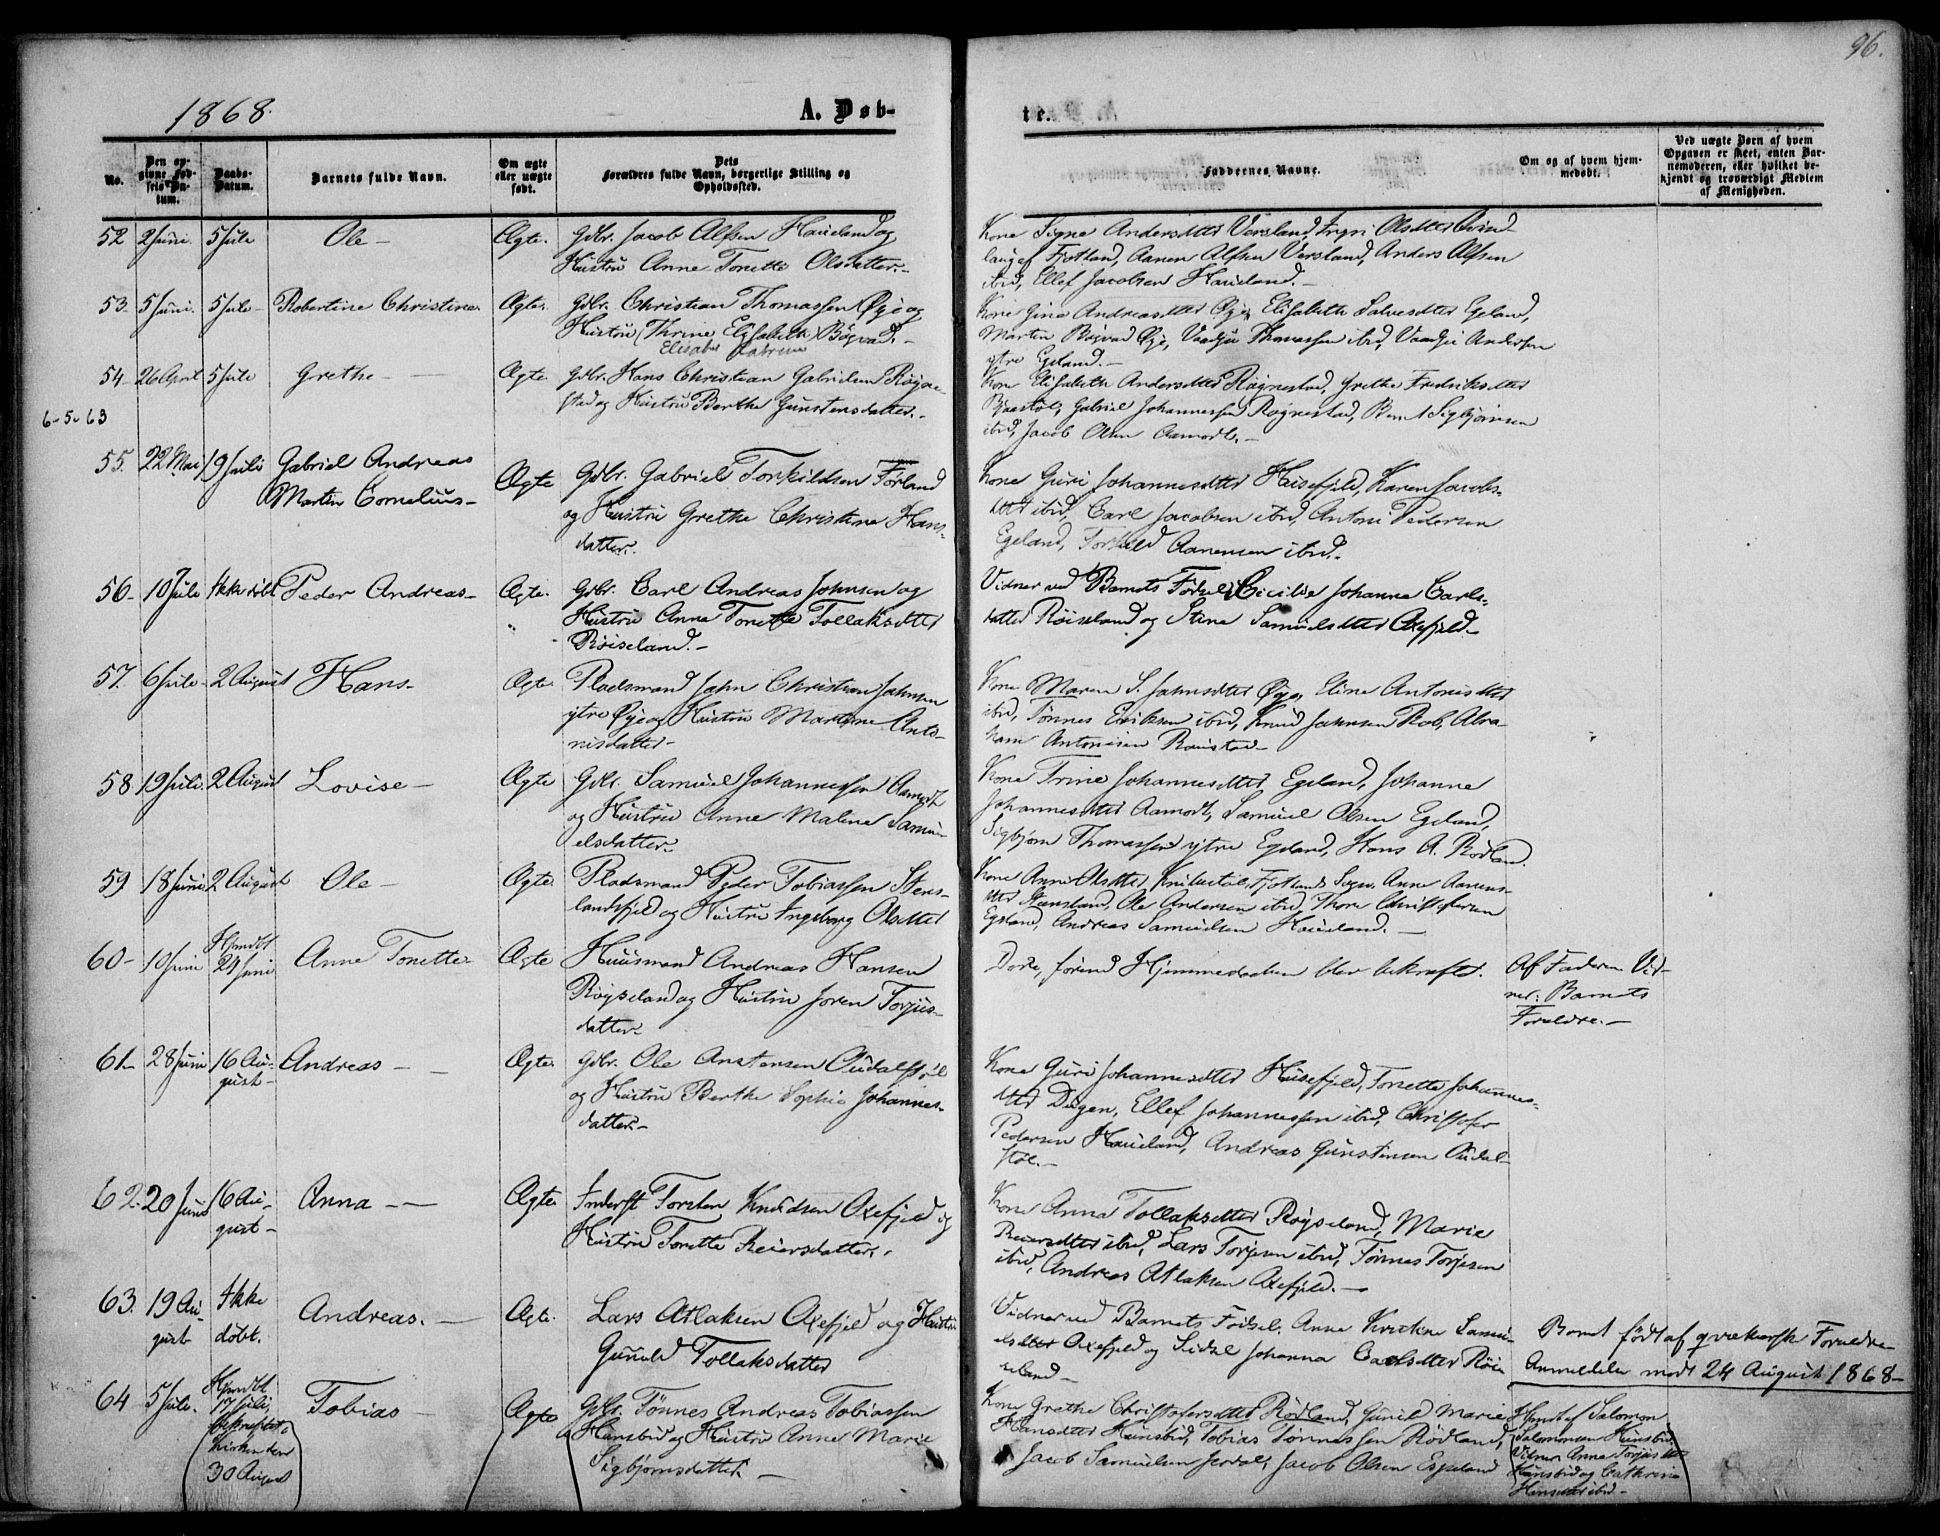 96.
1868.
A. Døb-
te.
No.
Den op-
givne Fød-
sels Da-
tum.
Daabs-
Datum.
Barnets fulde Navn.
Om ægte
eller uægte
født.
Dets
Forældres fulde Navn, borgerlige Stilling og
Opholdssted.
Faddernes Navne.
Om og af hvem hjem-
medøbt.
Ved uægte Børn af hvem
Opgaven er skeet, enten Bar-
nemoderen, eller hvilket be-
kjendt og troværdigt Medlem
af Menigheden.
52 2 Juni. 5 Juli Ole - Ægte. Gdbr. Jacob Alfsen Haueland og
Hustru Anne Tonette Olsdatter.-
Kone Signe Andersdtter Versland, Ingri Olsdtter
Fjotland, Aanen Alfsen Versland, Anders Alfsen
ibid, Ellef Jacobsen Haueland.-
53. 5 Juni. 5 Juli- Robertine Christine. Ægte. Gdbr. Christian Thomassen Øye og
Hustru Thrine Elisabeth Bøgvad.-
Elisabet Katrine
Kone Gina Andreasdtter Øye, Elisabeth Salvesdtter Egeland,
Martin Bøgvad Øye, Vaadju Thomassen ibid, Vaadju Andersen
ytre Egeland.-
54. 26 April 5 Juli Grethe - Ægte Gdbr. Hans Christian Gabrielsen Røgne-
sted og Hustru Berthe Gunstensdatter.-
Kone Elisabeth Andersdtter Røgnestad, Grethe Fredriksdtter
Bjaastøl, Gabriel Johannessen Røgnestad, Bernt Sigbjørnsen
ibid, Jacob Olsen Aamodt.-
6-5-63
55. 22 Mai 19 Juli Gabriel Andreas
Martin Cornelius- Ægte Gdbr. Gabriel Torkildsen Førland
og Hustru Grethe Christine Hans-
datter.
Kone Guri Johannesdtter Husefjeld, Karen Jacobs-
dtt ibid, Carl Jacobsen ibid, Antoni Pedersen
Egeland, Torkild Aanensen ibid.-
56- 10 Juli Ikke døbt Peder Andreas- Ægte. Gdbr. Carl Andreas Johnsen og
Hustru Anna Tonette Tollaksdtter
Røiseland.-
Vidner ved Barnets Fødsel: Cicilie Johanna Carls-
datter Røiseland og Stine Samuelsdtter Oxefjeld-
57. 6 Juli- 2 August Hans- Ægte Pladsmand Jahn Christian Jahnsen
ytre Øye og Hustru Martine Anto-
nisdatter-
Kone Maren S. Jahnsdtter Øye, Eline Antonisdtter
ibid, Tønnes Eriksen ibid, Knud Jahnsen Rob, Abra-
ham Antonisen Ranestad-
58 19 Juli. 2 August Lovise- Ægte Gdbr. Samuel Johannessen Aamodt
og Hustru Anne Malene Samu-
elsdatter.
Kone Trine Johannesdtter Egeland, Johanne
Johannesdtter Aamodt, Samuel Olsen Egeland,
Sigbjørn Thomassen ytre Egeland, Hans A. Rødland.
59 18 Juni 2 August Ole- Ægte. Pladsmand Peder Tobiassen Stens-
landsfjeld og Hustru Ingeborg Olsdtter
Kone Anne Olsdtter Fjotlands Sogn, Anne Aanens-
dtt Stensland, Ole Andersen ibid, Thore Christophersen
Egeland, Andreas Samuelsen Haueland.-
60- 10 Juni Hjmdbt
24 Juni Anne Tonette- Ægte Huusmand Andreas Hansen
Røyseland og Hustru Joren Torjus-
datter-
Døde, førend Hjemmedaaben blev bekræftet.
Af Faderen Vid-
ner: Barnets
Forældre.-
61- 28 Juni 16 Au-
gust- Andreas - - Ægte. Gdbr. Ole Anstensen Oudalstøl
og Hustru Berthe Sophie Johannes-
datter.-
Kone Guri Johannesdtter Husefjeld, Tonette Johannes-
dtt Dugan, Ellef Johannessen ibid, Christoffer
Pedersen Haueland, Andreas Gunstensen Oudal-
støl.-
62. 20 Juni 16 Au-
gust- Anna - - Ægte. Inderst Torsten Knudsen Oxefjeld og
Hustru Tonette Reiersdatter.-
Kone Anna Tollaksdtter Røyseland, Marie
Reiersdtter ibid, Lars Torjesen ibid, Tønnes Torjesen
ibid, Andreas Atlaksen Oxefjeld.-
63. 19 Au-
gust Ikke
døbt. Andreas.- Ægte. Lars Atlaksen Oxefjeld og Hustru
Gunild Tollaksdatter
Vidner ved Barnets Fødsel: Anne Samu-
elsdtter Oxefjeld og Sidsel Johanna Carlsdtter Røi-
seland-
Barnet født af qvækerske Forældre-
Anmeldelse modt. 24 August 1868-
64 5 Juli. Hjmdbt
17 Juli,
bekræftet i
Kirken den
30 August Tobias- Ægte Gdbr. Tønnes Andreas Tobiassen
Hunsbid og Hustru Anne Marie
Sigbjørnsdatter.-
Kone Grethe Christoffersdtter Rødland, Gunild Marie
Hansdtter Hunsbid, Tobias Tønnessen Rødland,
Jacob Samuelsen Jerdal, Jacob Olsen Espeland
Hjmdbt af Salomon
Salomonsen Hunsbid,
Vidner Anna Torjusdtt
Hunsbid og Cathrine
Hansdtter ibid-